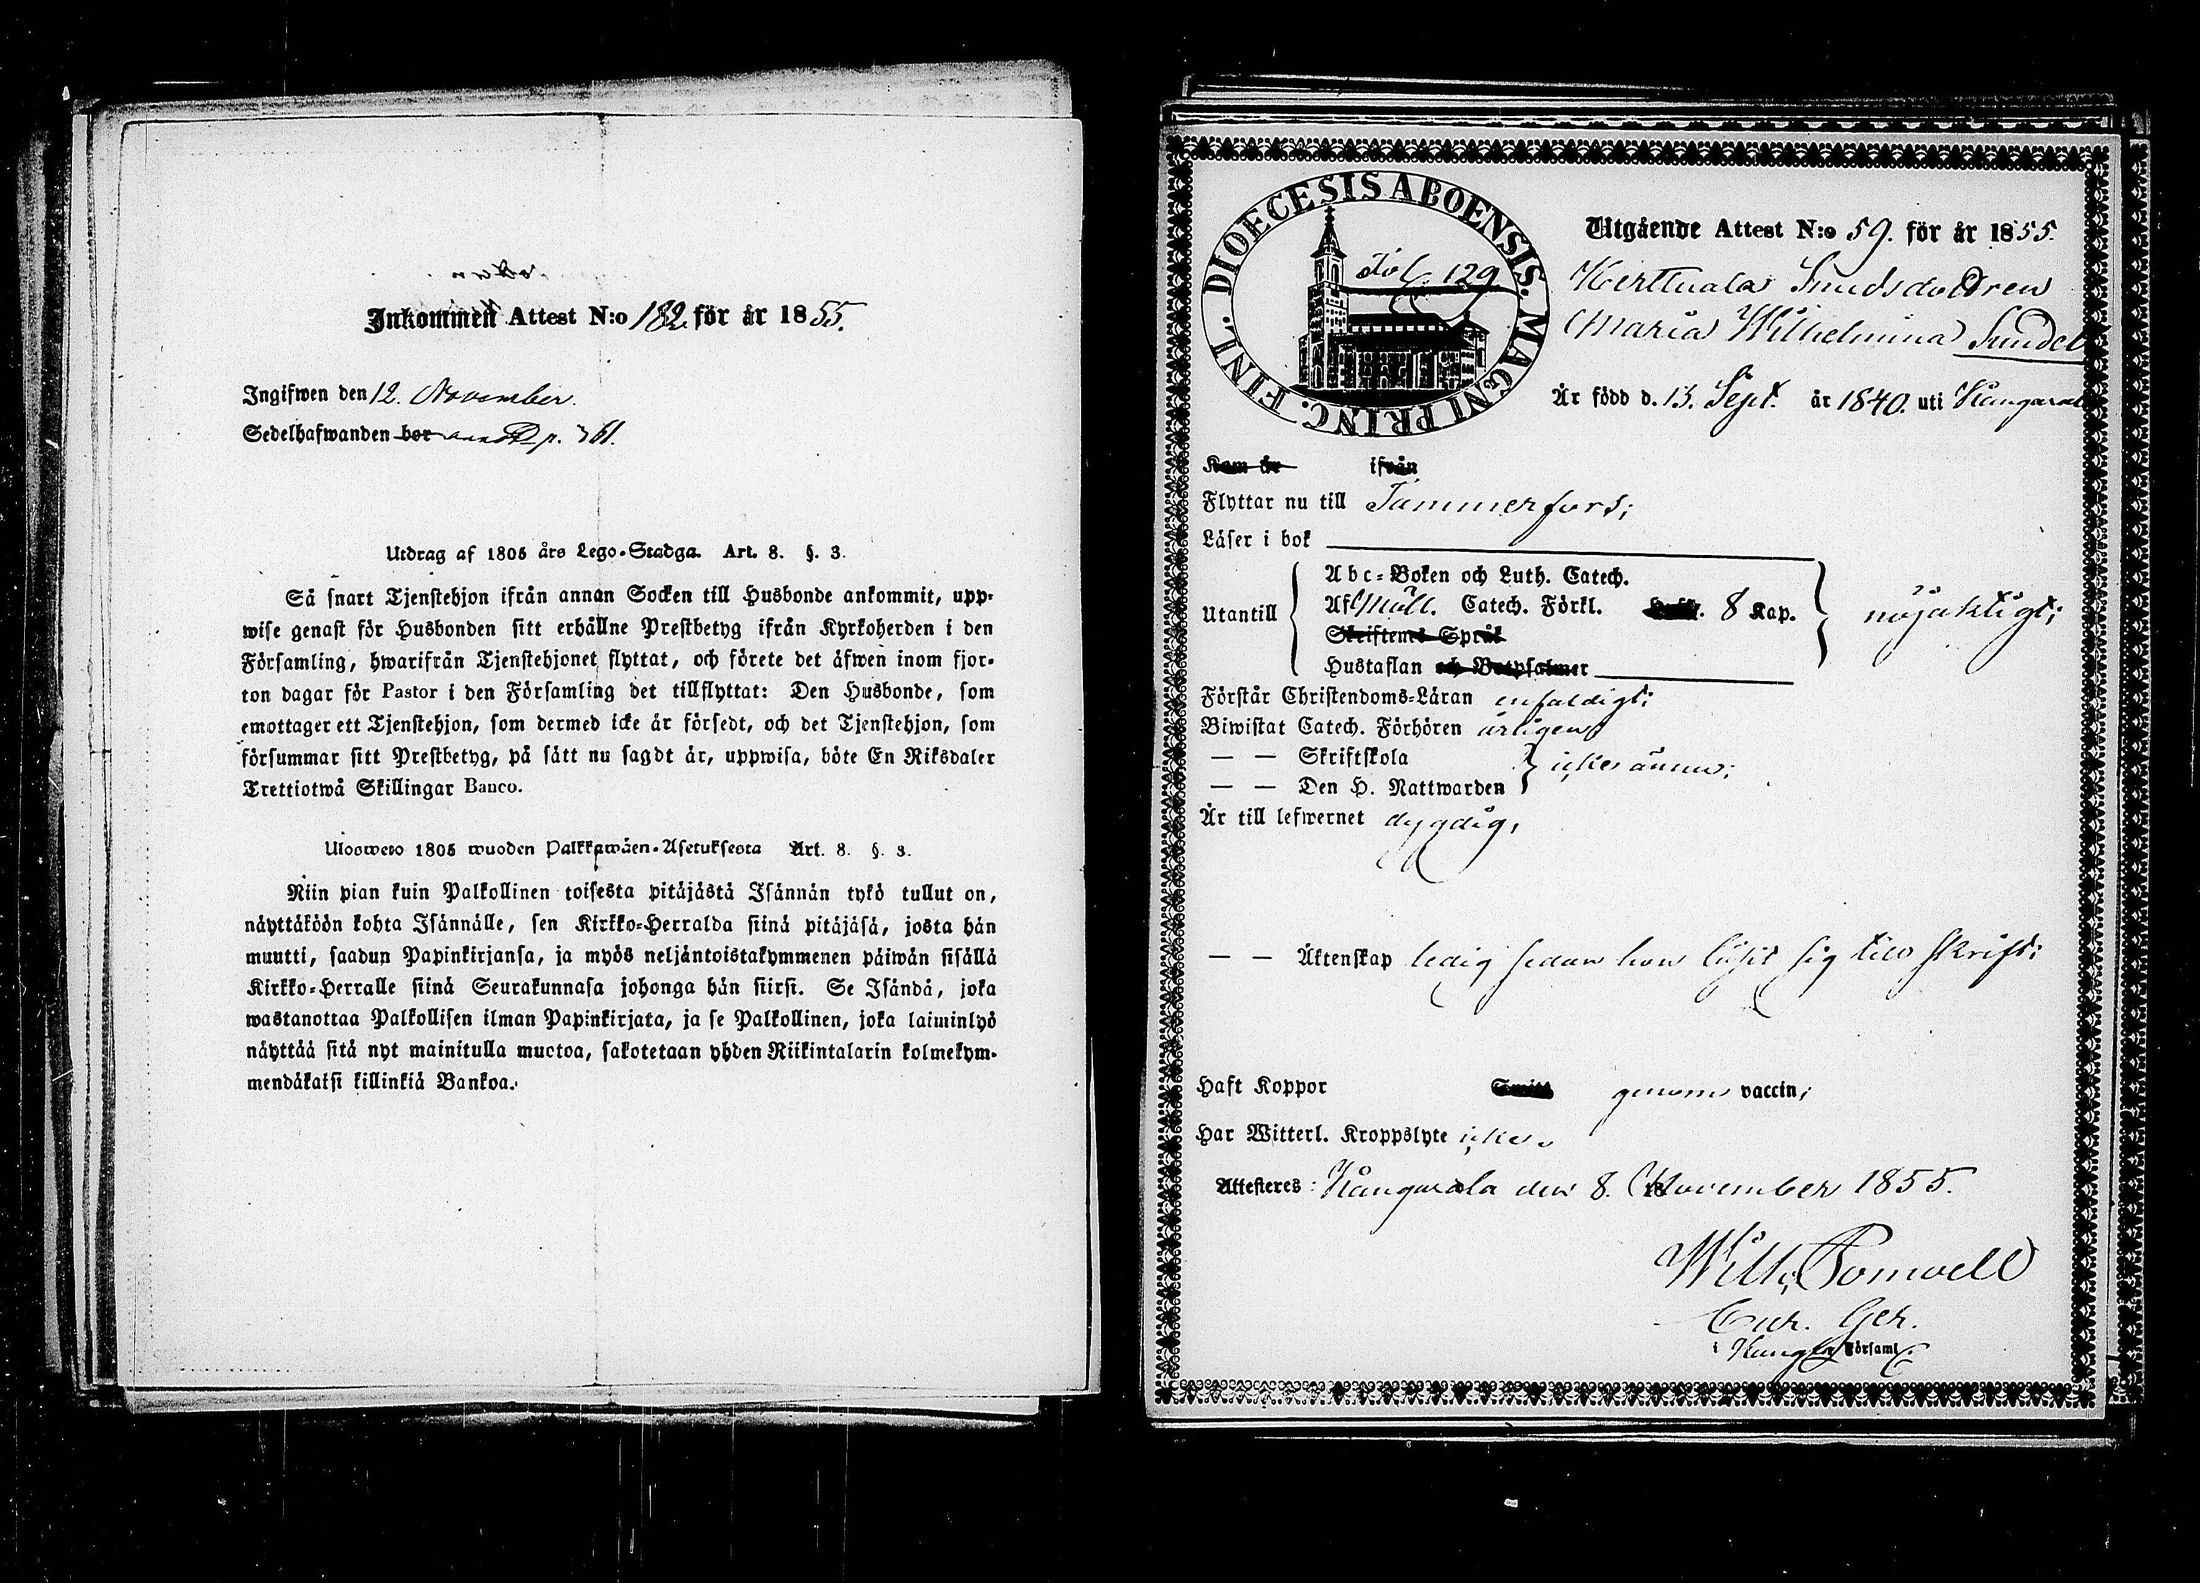 Inkommen Attest N:o 182 för år 1855.
Ingifwen den 12. November.
Sedelhafwanden bor p. 361.
Utdrag af 1805 års Lego-Stadga. Art. 8. §. 3.
Så snart Tjenstehjon ifrån annan Socken till Husbonde ankommit, upp-
wise genast för Husbonden sitt erhållne Prestbetyg ifrån Kyrkoherden i den
Församling, hwarifrån Tjenstehjonet flyttat, och förete det äfwen inom fjor-
ton dagar för Pastor i den Församling det tillflyttat: Den Husbonde, som
emottager ett Tjenstehjon, som dermed icke är försedt, och det Tjenstehjon, som
försummar sitt Prestbetyg, på sätt nu sagdt är, uppwisa, böte En Riksdaler
Trettiotwå Skillingar Banco.
Ulosweto 1805 wuoden Palkkawäen-Asetuksesta Art. 8. §. 3.
Niin pian kuin Palkollinen toisesta pitäjästä Isännän tykö tullut on,
näyttäköön kohta Isännälle, sen Kirkko-Herralda siinä pitäjäsä, josta hän
muutti, saadun Papinkirjansa, ja myös neljäntoistakymmenen päiwän sisällä
Kirkko-Herralle siinä Seurakunnasa johonga hän siirsi. Se Isändä, joka
wastanottaa Palkollisen ilman Papinkirjata, ja se Palkollinen, joka laiminlyö
näyttää sitä nyt mainitulla muotoa, sakotetaan yhden Riikintalarin kolmekym-
mendäkaksi killinkiä Bankoa.
DIOECESIS ABOENSIS. MAGNI PRINC. FINL.
Fol. 129
Utgående Attest N:o 59. för år 1855.
Herttuala Smedsdottren
Maria Wilhelmina Sundel
Är född d. 13. Sept. år 1840. uti Kangasala
Kom år ifrån
Flyttar nu till Tammerfors;
Läser i bok
Utantill
Abc-Boken och Luth. Catech.
Af Möll. Catech. Förkl. 8 Kap. nöjaktigt;
Skriftenes Språk
Hustaflan och Botpsalmer
Förstår Christendoms-Läran enfaldigt;
Biwistat Catech. Förhören årligen
— — Skriftskola
— — Den H. Nattwarden icke ännu;
Är till lefwernet dygdig,
— — Äktenskap ledig sedan hon läsit sig till skrift;
Haft Koppor genom vaccin;
Har Witterl. Kroppslyte icke.
Attesteres: Kangasala den 8. November 1855.
Wilh. Pomoell
Cur. Ger.
i Kangla Församl.